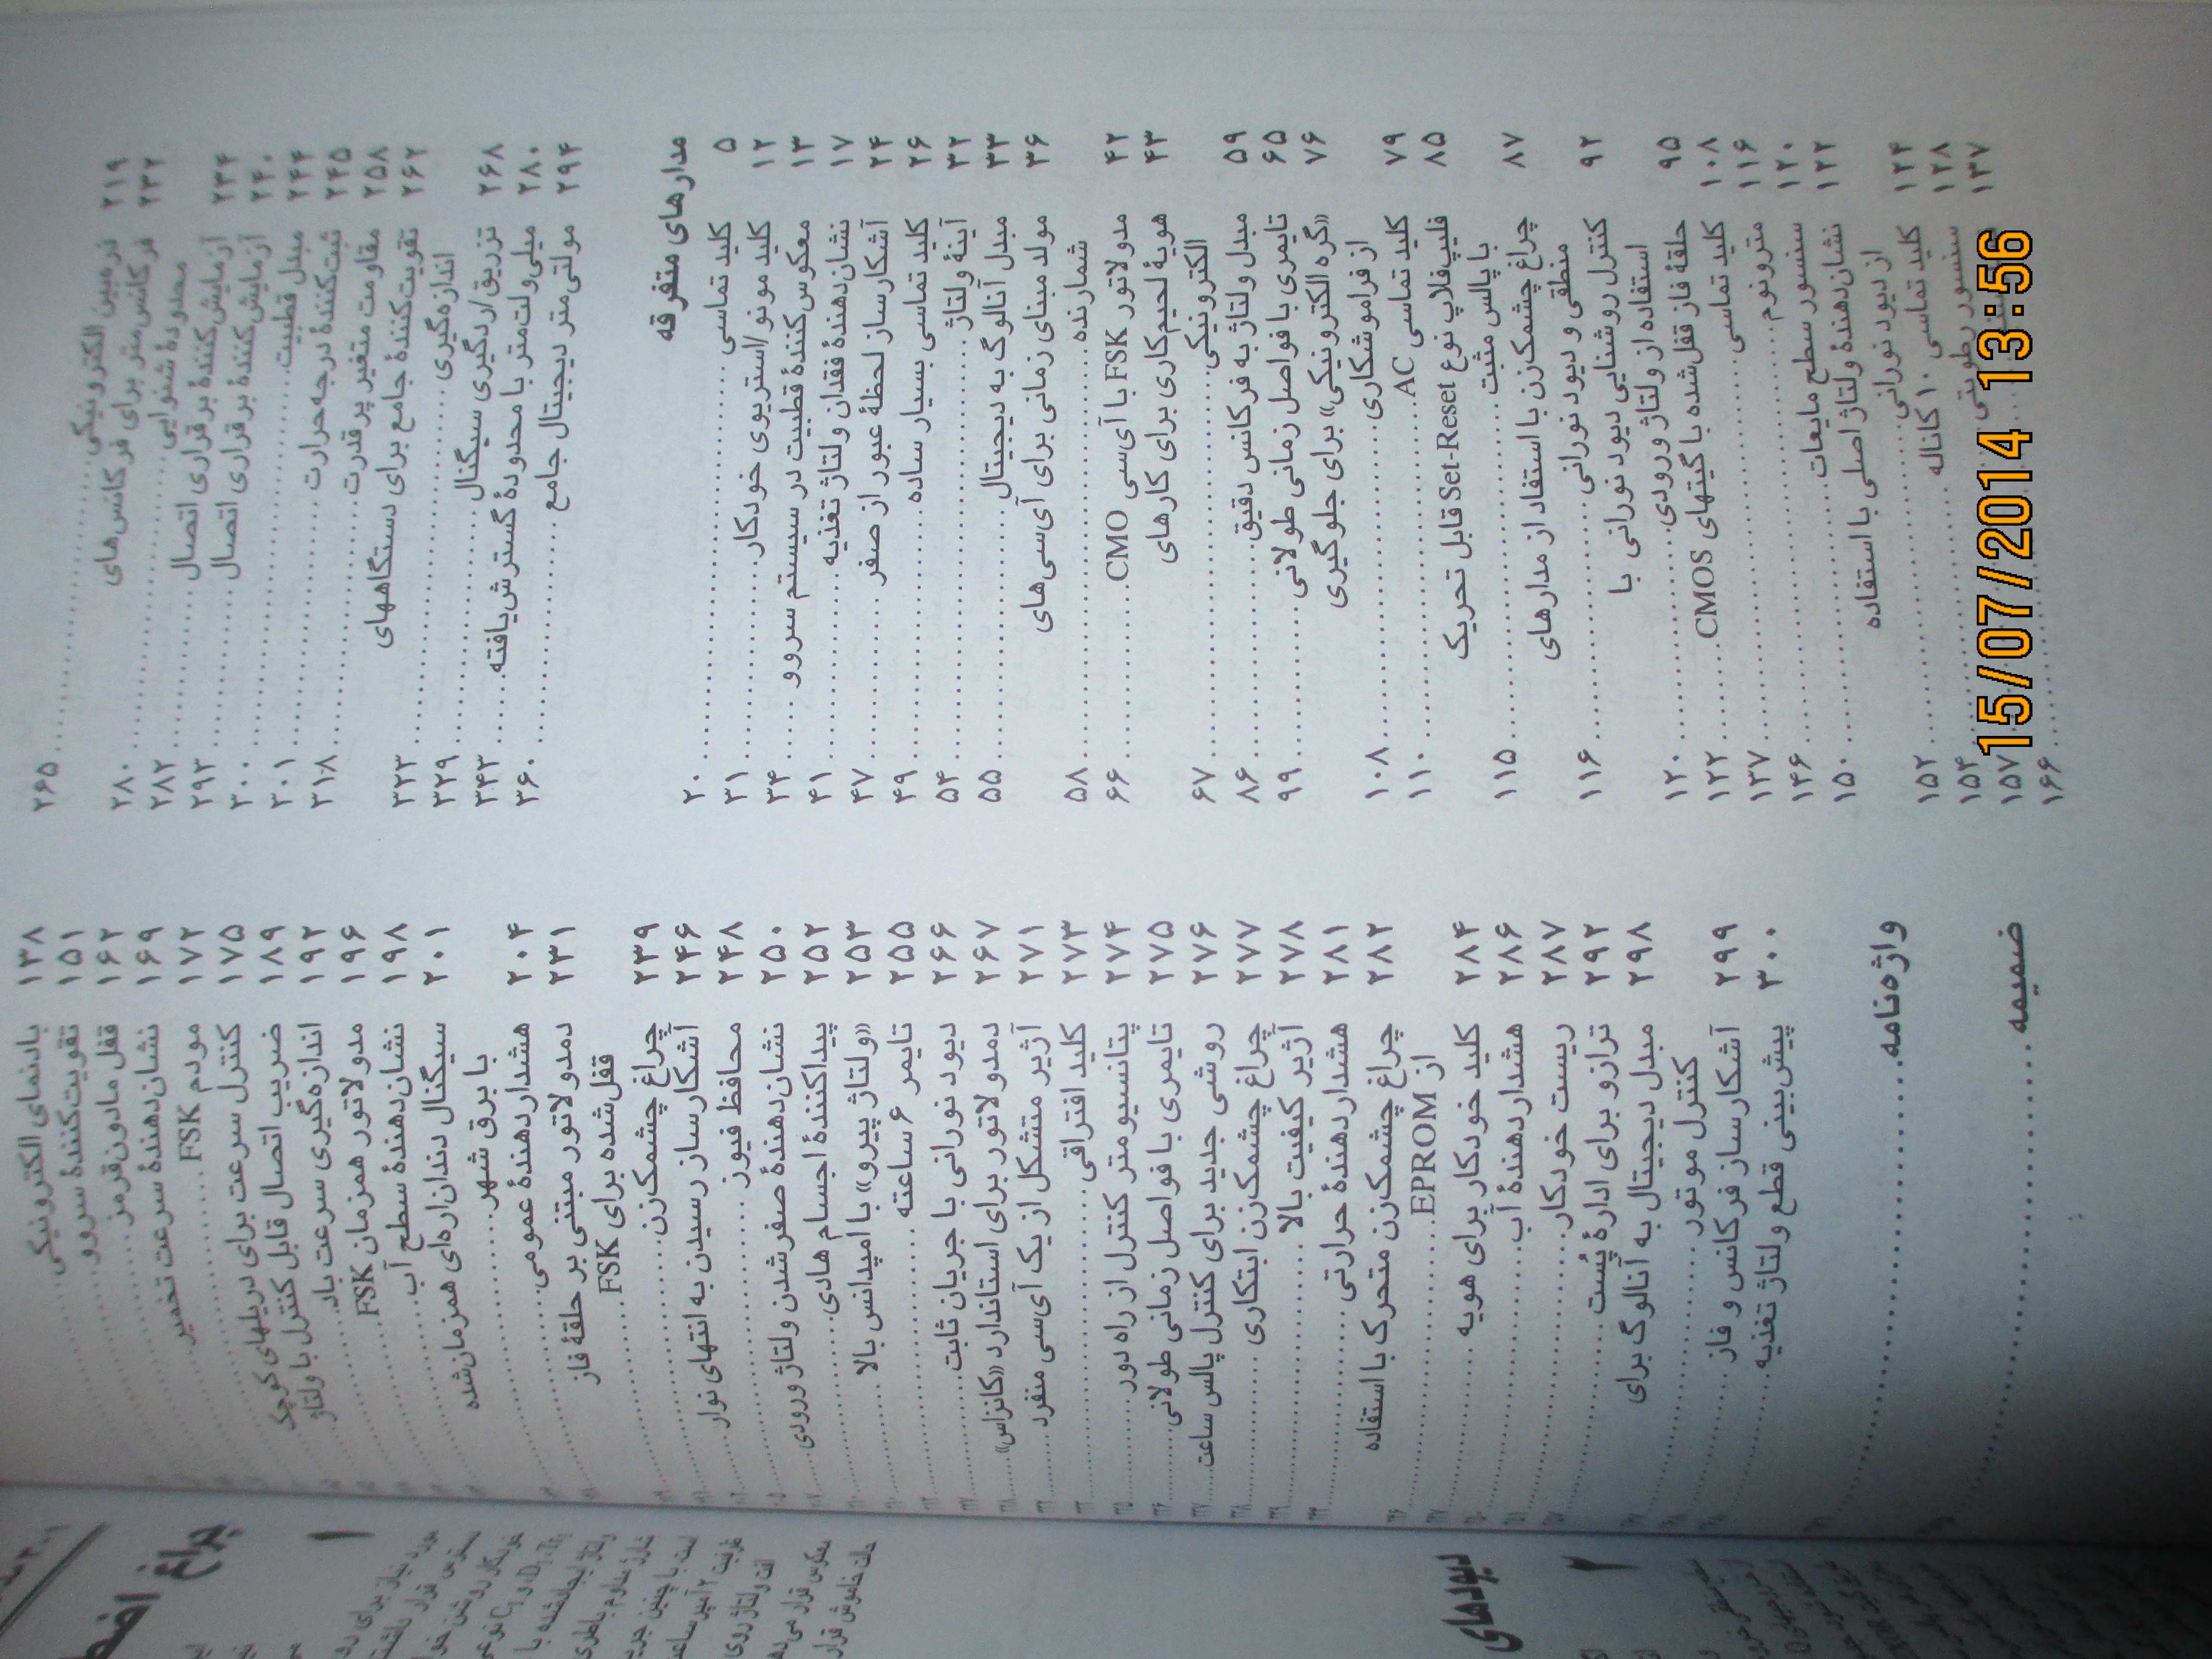 ۲۱۹ ذره‌بین الکترونیکی ..... ۲۶۵
۲۳۲ فرکانس‌متر برای فرکانس‌های
محدودهٔ شنوایی ..... ۲۸۰
۲۳۴ آزمایش‌کنندهٔ برقراری اتصال ..... ۲۸۲
۲۴۰ آزمایش‌کنندهٔ برقراری اتصال ..... ۲۹۳
۲۴۴ مبدل قطبیت ..... ۳۰۰
۲۴۵ ثبت‌کنندهٔ درجه حرارت ..... ۳۰۱
۲۵۸ مقاومت متغیر پرقدرت ..... ۳۱۸
۲۶۲ تقویت‌کنندهٔ جامع برای دستگاههای
اندازه‌گیری ..... ۳۲۳
۲۶۸ تزریق/ردگیری سیگنال ..... ۳۲۹
۲۸۰ میلی‌ولت‌متر با محدودهٔ گسترش‌یافته ..... ۳۴۳
۲۹۴ مولتی‌متر دیجیتال جامع ..... ۳۶۰
مدارهای متفرقه
۵ کلید تماسی ..... ۲۰
۱۲ کلید مونو/استریوی خودکار ..... ۳۱
۱۳ معکوس‌کنندهٔ قطبیت در سیستم سروو ..... ۳۴
۱۷ نشان‌دهندهٔ فقدان ولتاژ تغذیه ..... ۴۱
۲۴ آشکارساز لحظهٔ عبور از صفر ..... ۴۷
۲۶ کلید تماسی بسیار ساده ..... ۴۹
۳۲ آینهٔ ولتاژ ..... ۵۴
۳۳ مبدل آنالوگ به دیجیتال ..... ۵۵
۳۶ مولد مبنای زمانی برای آی‌سی‌های
شمارنده ..... ۵۸
۴۲ مدولاتور FSK با آی‌سی CMO ..... ۶۶
۴۳ هویهٔ لحیم‌کاری برای کارهای
الکترونیکی ..... ۶۷
۵۹ مبدل ولتاژ به فرکانس دقیق ..... ۸۶
۶۵ تایمری با فواصل زمانی طولانی ..... ۹۹
۷۶ «گره الکترونیکی» برای جلوگیری
از فراموشکاری ..... ۱۰۸
۷۹ کلید تماسی AC ..... ۱۱۰
۸۵ فلیپ‌فلاپ نوع Set-Reset قابل تحریک
با پالس مثبت ..... ۱۱۵
۸۷ چراغ چشمک‌زن با استفاد از مدارهای
منطقی و دیود نورانی ..... ۱۱۶
۹۲ کنترل روشنایی دیود نورانی با
استفاده از ولتاژ ورودی ..... ۱۲۰
۹۵ حلقهٔ فاز قفل‌شده با گیتهای CMOS ..... ۱۲۲
۱۰۸ کلید تماسی ..... ۱۳۷
۱۱۶ مترونوم ..... ۱۴۶
۱۲۰ سنسور سطح مایعات ..... ۱۵۰
۱۲۲ نشان‌دهندهٔ ولتاژ اصلی با استفاده
از دیود نورانی ..... ۱۵۲
۱۲۴ کلید تماسی ۱۰ کاناله ..... ۱۵۴
۱۲۸ سنسور رطوبتی ..... ۱۵۷
۱۳۷ ..... ۱۶۶
۱۳۸ بادنمای الکترونیکی
۱۵۱ تقویت‌کنندهٔ سروو
۱۶۲ قفل مادون‌قرمز
۱۶۹ نشان‌دهندهٔ سرعت تخمیر
۱۷۲ مودم FSK
۱۷۵ کنترل سرعت برای دریلهای کوچک
۱۸۹ ضریب اتصال قابل کنترل با ولتاژ
۱۹۲ اندازه‌گیری سرعت باد
۱۹۶ مدولاتور همزمان FSK
۱۹۸ نشان‌دهندهٔ سطح آب
۲۰۱ سیگنال دندان‌اره‌ای همزمان‌شده
با برق شهر
۲۰۴ هشداردهندهٔ عمومی
۲۳۱ دمدولاتور مبتنی بر حلقهٔ فاز
قفل‌شده برای FSK
۲۳۹ چراغ چشمک‌زن
۲۴۶ آشکارساز رسیدن به انتهای نوار
۲۴۸ محافظ فیوز
۲۵۰ نشان‌دهندهٔ صفر شدن ولتاژ ورودی
۲۵۲ پیداکنندهٔ اجسام هادی
۲۵۳ «ولتاژ پیرو» با امپدانس بالا
۲۵۵ تایمر ۶ ساعته
۲۶۶ دیود نورانی با جریان ثابت
۲۶۷ دمدولاتور برای استاندارد «کانزاس»
۲۷۱ آژیر متشکل از یک آی‌سی منفرد
۲۷۳ کلید افتراقی
۲۷۴ پتانسیومتر کنترل از راه دور
۲۷۵ تایمری با فواصل زمانی طولانی
۲۷۶ روشی جدید برای کنترل پالس ساعت
۲۷۷ چراغ چشمک‌زن ابتکاری
۲۷۸ آژیر کیفیت بالا
۲۸۱ هشداردهندهٔ حرارتی
۲۸۲ چراغ چشمک‌زن متحرک با استفاده
از EPROM
۲۸۴ کلید خودکار برای هویه
۲۸۶ هشداردهندهٔ آب
۲۸۷ ریست خودکار
۲۹۲ ترازو برای ادارهٔ پُست
۲۹۸ مبدل دیجیتال به آنالوگ برای
کنترل موتور
۲۹۹ آشکارساز فرکانس و فاز
۳۰۰ پیش‌بینی قطع ولتاژ تغذیه
واژه‌نامه
ضمیمه
چراغ
۱
دیودهای
۲
15/07/2014 13:56